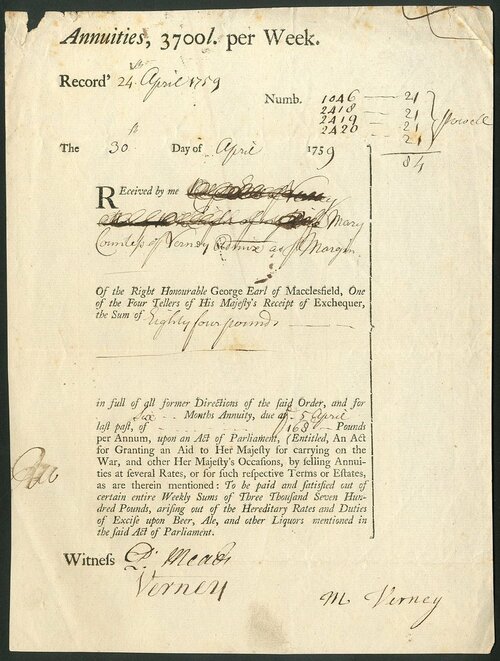 Annuities, 3700l. per Week.
Record' 24th April 1759
Numb. 1046 — 21
2418 — 21
2419 — 21
2420 — 21
84
The 30th Day of April 1759
REceived by me
Mary
Countess of Verney as pr Margin
Of the Right Honourable George Earl of Macclesfield, One
of the Four Tellers of His Majesty's Receipt of Exchequer,
the Sum of Eighty four pounds
in full of all former Directions of the said Order, and for
Six Months Annuity, due at 5 April
last past, of 168 Pounds
per Annum, upon an Act of Parliament, (Entitled, An Act
for Granting an Aid to Her Majesty for carrying on the
War, and other Her Majesty's Occasions, by selling Annui-
ties at several Rates, or for such respective Terms or Estates,
as are therein mentioned: To be paid and satisfied out of
certain entire Weekly Sums of Three Thousand Seven Hun-
dred Pounds, arising out of the Hereditary Rates and Duties
of Excise upon Beer, Ale, and other Liquors mentioned in
the said Act of Parliament.
Witness P. Meads
Verney
M Verney